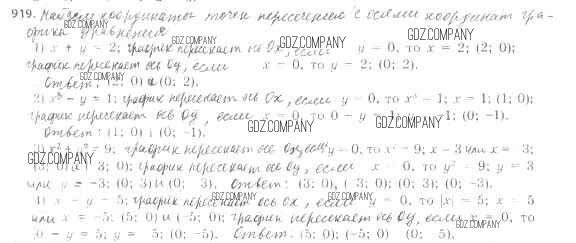 919. Найдем координаты точек пересечения с осями координат гра-
фика уравнения:
GDZ.COMPANY
1) x + y = 2; график пересекает ось Ox, если y = 0, то x = 2; (2; 0);
GDZ.COMPANY GDZ.COMPANY
график пересекает ось Oy, если x = 0, то y = 2; (0; 2).
GDZ.COMPANY
Ответ: (2; 0) и (0; 2).
2) x³ − y = 1; график пересекает ось Ox, если y = 0, то x³ − 1; x = 1; (1; 0);
график пересекает ось Oy, если x = 0, то 0 − y = 1; y = −1; (0; −1).
GDZ.COMPANY GDZ.COMPANY
Ответ: (1; 0) ; (0; −1).
3) x² + y² = 9; график пересекает ось Ox, если y = 0, то x² = 9; x = 3 или x = 3;
GDZ.COMPANY
(3; 0) и ( 3; 0); график пересекает ось Oy, если x = 0, то y² = 9; y = 3
или y = −3; (0; 3) и (0; 3). Ответ: (3; 0), (−3; 0); (0; 3); (0; −3).
GDZ.COMPANY GDZ.COMPANY
4) x − y = 5; график пересекает ось Ox, если y = 0, то |x| = 5; x = 5
или x = −5; (5; 0) и (−5; 0); график пересекает ось Oy, если x = 0, то
0 − y = 5; y = 5; (0; −5). Ответ. (5; 0); (−5; 0) (0; −5).
GDZ.COMPANY